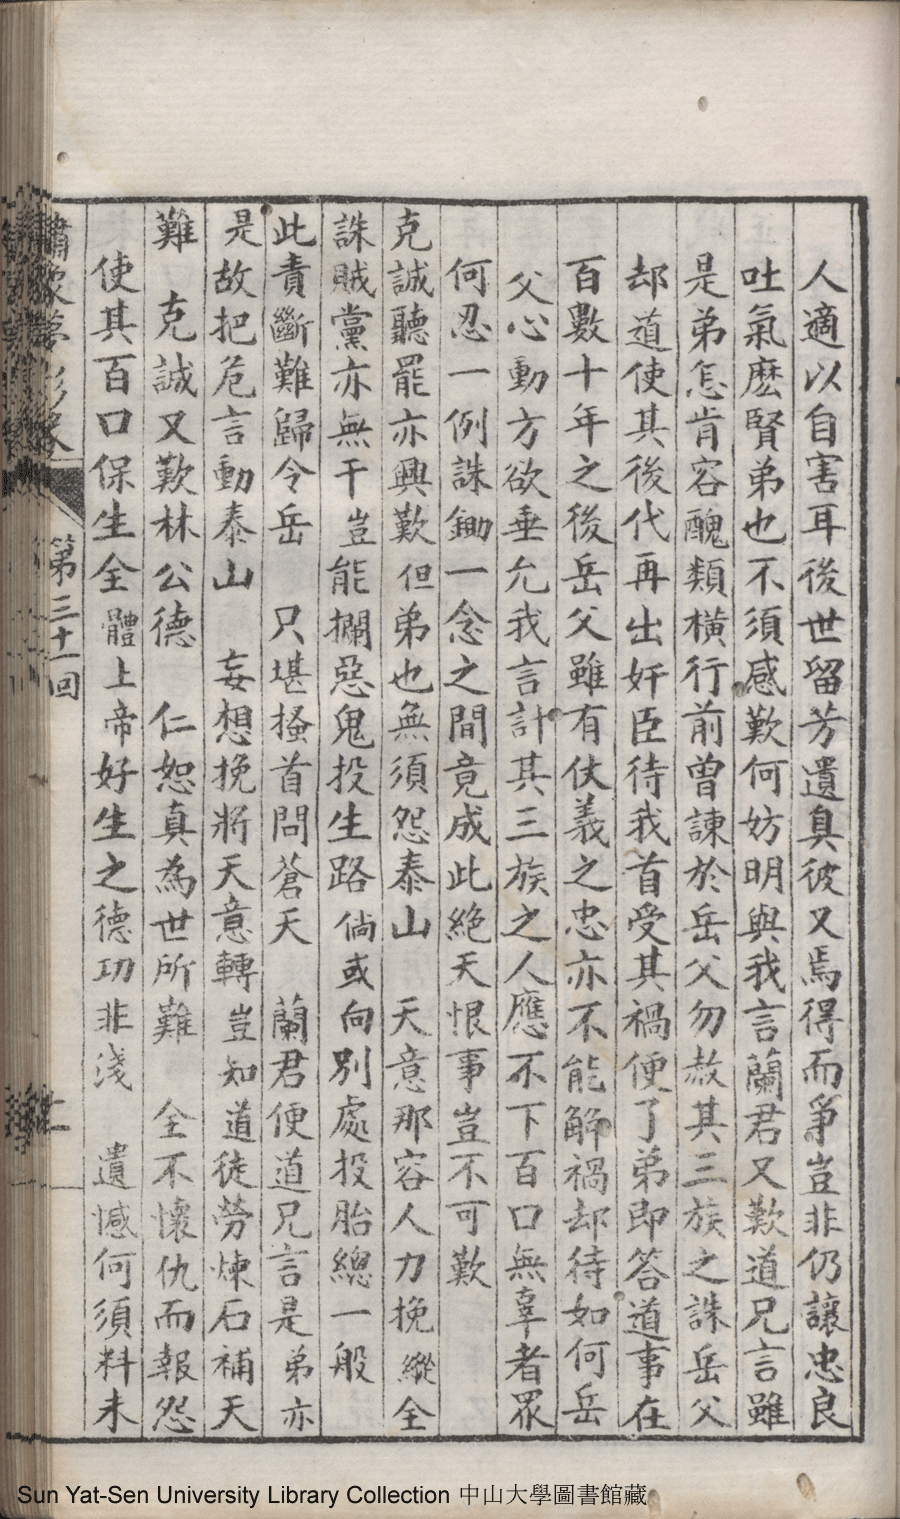 人適以自害耳後世留芳遺臭彼又焉得而爭豈非仍讓忠良
吐氣麽賢弟也不須感歎何妨明與我言蘭君又歎道兄言雖
是弟怎肯容醜類橫行前曾諫於岳父勿赦其三族之誅岳父
却道使其後代再出奸臣待我首受其禍便了弟即答道事在
百數十年之後岳父雖有仗義之忠亦不能解禍却待如何岳
父心動方欲垂允我言計其三族之人應不下百口無辜者眾
何忍一例誅鋤一念之間竟成此絕天恨事豈不可歎
克誠聽罷亦興歎 但弟也無須怨泰山 天意那容人力挽 縱全
誅賊黨亦無干 豈能攔惡鬼投生路 倘或向別處投胎總一般
此責斷難歸令岳 只堪搔首問蒼天 蘭君便道兄言是 弟亦
是故把危言動泰山 妄想挽將天意轉 豈知道徒勞煉石補天
難 克誠又歎林公德 仁恕真為世所難 全不懷仇而報怨
使其百口保生全 體上帝好生之德功非淺 遺憾何須料未
第三十一回
Sun Yat-Sen University Library Collection 中山大學圖書館藏